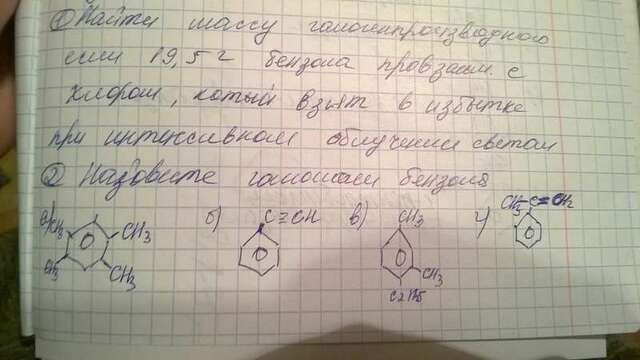 ① Найти массу галогенпроизводного
если 19,5 г бензола провзаим. с
хлором, котый взят в избытке
при интенсивном облучении светом
② Назовите гомологи бензола
а) CH3 CH3 CH3 CH3 б) C≡CH в) CH3 CH3 C2H5 г) CH3-C=CH2